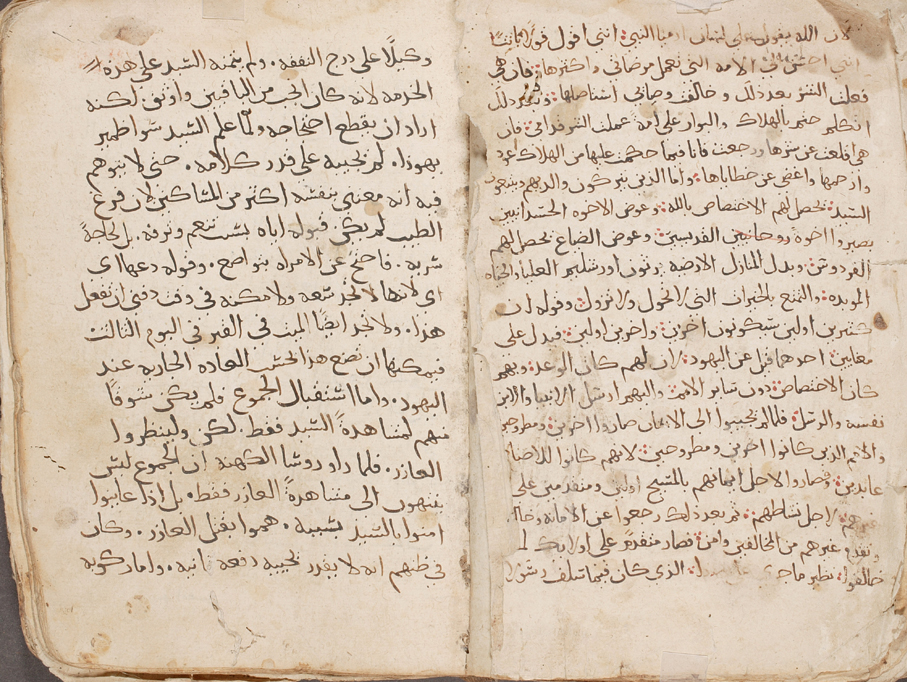 لان الله يقول على لسان ارميا النبي انني اقول قولا ثابتا
الامه التي تعمل مرضاتي واكثرها فان هي
فعلت الشر بعد ذلك وخالفت وصاياي استاصلها وبغير ذلك
اتكلم حتم بالهلاك والبوار على امة عملت الشر قدامي فان
هي اقلعت عن شرها ورجعت فانا فيما حكمت عليها من الهلاك اعود
وارحمها واغضي عن خطاياها واما الذين يتركون والديهم ويتبعون
السيد يحصل لهم الاختصاص بالله وعوض الاخوه الجسدانيين
يصيروا اخوة روحانيين القديسين وعوض الضياع يحصل لهم
الفردوس وبدل المنازل الارضيه يرثون اورشليم العليا والحياه
الموبده والتنعم بالخيرات التي لا تحول ولا تزول وقوله ان
كثيرين اولين سيكونون اخرين واخرين اولين فيدل على
معانين احدهما قيل عن اليهود لان لهم كان الوعد وبهم
كان الاختصاص دون ساير الامم واليهم ارسل الانبيا والابن
نفسه والرسل فلما لم يجيبوا الى الايمان صاروا اخرين ومطروحين
والامم الذين كانوا اخرين ومطروحين لانهم كانوا للاصنام
عابدين وصاروا لاجل ايمانهم بالمسيح اولين ومتقدمين على
غيرهم لاجل نشاطهم ثم بعد ذلك رجعوا عن الامانه
وتقدم غيرهم من الخالفين وامن فصار متقدم على اولايك
خالفوا نظير ما الذي كان فيما سلف
وكيلا على درج النفقه. ولم يمنه السيد على هذه
الخدمه لانه كان احب من الباقين واوثق لكنه
اراد ان يقطع احتجاجه ولما علم السيد سوا ظمير
يهوذا. لم يجيبه على قدر كلامه. حتى لا يتوهم
فيه انه معتني بنفسه اكثر من المساكين لان فرغ
الطيب لم يكن قبوله اياه بسبب تنعم وترفه. بل لحاجة
شريه. فاحتج عن الامراه بتواضع. وقوله دعها اي
اي لانها لا تجد سعه ولا مكنه في وقت دفني ان تفعل
هذا. ولا تجد ايضا الميت في القبر في اليوم الثالث
فيمكنها ان تصنع هذا الحسب العاده الجاريه عند
اليهود. واما استقبال الجموع فلم يكن شوقا
منهم لمشاهدة السيد فقط. لكن ولينظروا
العازر. فلما راو روسا الكهنه ان الجموع ليس
ينتهون الى مشاهدة العازر فقط. بل اذا عاينوا
امنوا بالسيد بسببه. هموا بقتل العازر. وكان
في ظنهم انه لا يقدر يحييه دفعه ثانيه. واما ركوبه